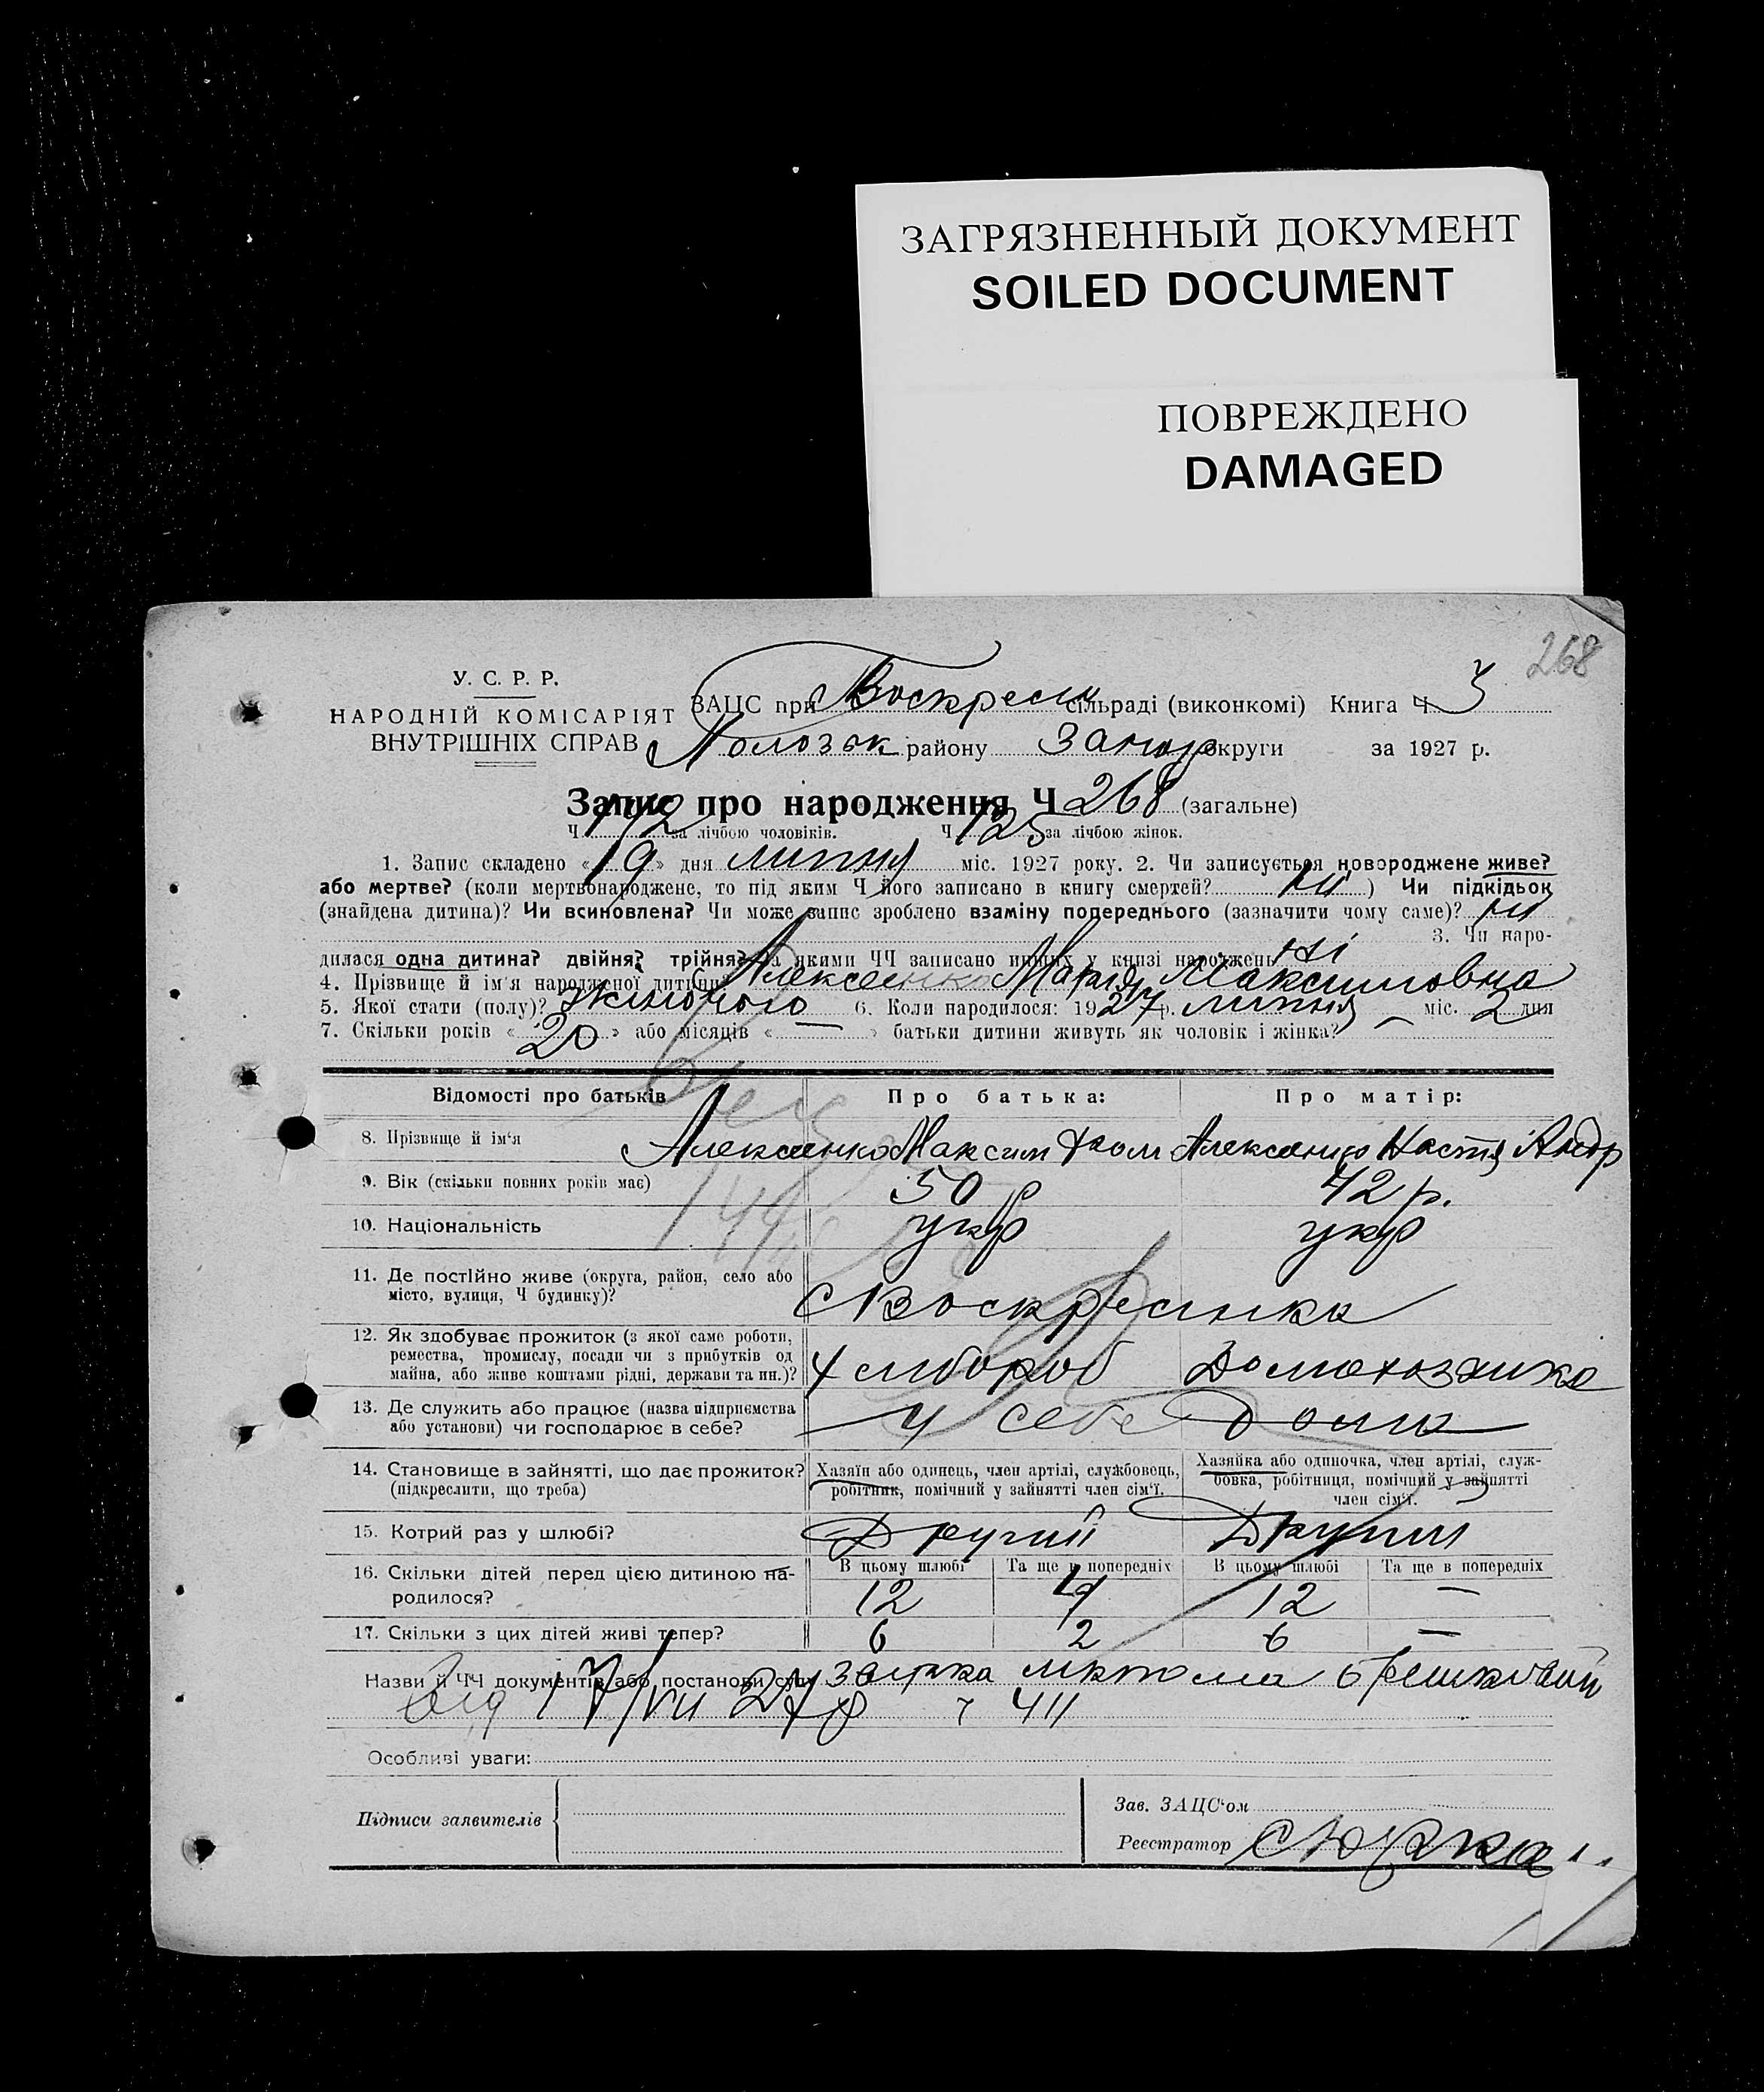 ЗАГРЯЗНЕННЫЙ ДОКУМЕНТ
SOILED DOCUMENT
ПОВРЕЖДЕНО
DAMAGED
268
У. С. Р. Р.
НАРОДНІЙ КОМІСАРІЯТ
ВНУТРІШНІХ СПРАВ
ЗАЦС при Воскресен сільраді (виконкомі) Книга Ч 3
Пологзьк району Запор округи за 1927 р.
Запис про народження Ч 268 (загальне)
Ч 142 за лічбою чоловіків. Ч 125 за лічбою жінок.
1. Запис складено «19» дня липня міс. 1927 року. 2. Чи записується новороджене живе?
або мертве? (коли мертвонароджене, то під яким Ч його записано в книгу смертей? ні) Чи підкідьок
(знайдена дитина)? Чи всиновлена? Чи може запис зроблено взаміну попереднього (зазначити чому саме)? ні
3. Чи наро-
дилася одна дитина? двійня? трійня? За якими ЧЧ записано инших у книзі народжень ні
4. Прізвище й ім'я народженої дитини? Алексеенко Марія Максимовна
5. Якої стати (полу)? жиночого 6. Коли народилося: 1927 р. липня міс. 2 дня
7. Скільки років «20» або місяців «—» батьки дитини живуть як чоловік і жінка? —
Відомості про батьків Про батька: Про матір:
8. Прізвище й ім'я Алексеенко Максим Алексеенко Настя Андр
9. Вік (скільки повних років має) 50 р 42 р.
10. Національність укр укр
11. Де постійно живе (округа, район, село або
місто, вулиця, Ч будинку)? С Воскресинка
12. Як здобуває прожиток (з якої саме роботи,
ремества, промислу, посади чи з прибутків од
майна, або живе коштами рідні, держави та ин.)? Хлибороб Домохозяика
13. Де служить або працює (назва підприємства
або установи) чи господарює в себе? У себе Дома
14. Становище в зайнятті, що дає прожиток?
(підкреслити, що треба)
Хазяїн або одинець, член артілі, службовець,
робітник, помічний у зайнятті член сім'ї.
Хазяйка або одиночка, член артілі, служ-
бовка, робітниця, помічний у зайнятті
член сім'ї.
15. Котрий раз у шлюбі? Другий Другий
16. Скільки дітей перед цією дитиною на-
родилося?
В цьому шлюбі Та ще в попередніх В цьому шлюбі Та ще в попередніх
12 4 12 —
17. Скільки з цих дітей живі тепер? 6 2 6 —
Назви й ЧЧ документів або постанови суду
від 17/VII 27 р 411
Особливі уваги:
Підписи заявителів
Зав. ЗАЦС'ом
Реєстратор